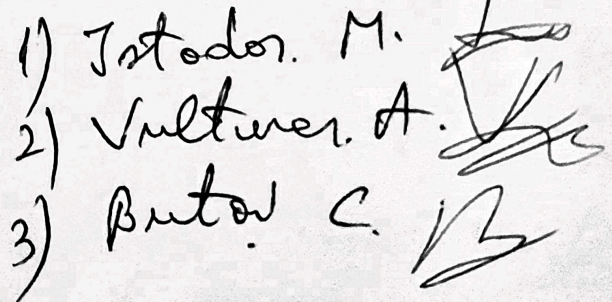 1) Istodor. M.
2) Vulturer. A.
3) Butoi C.